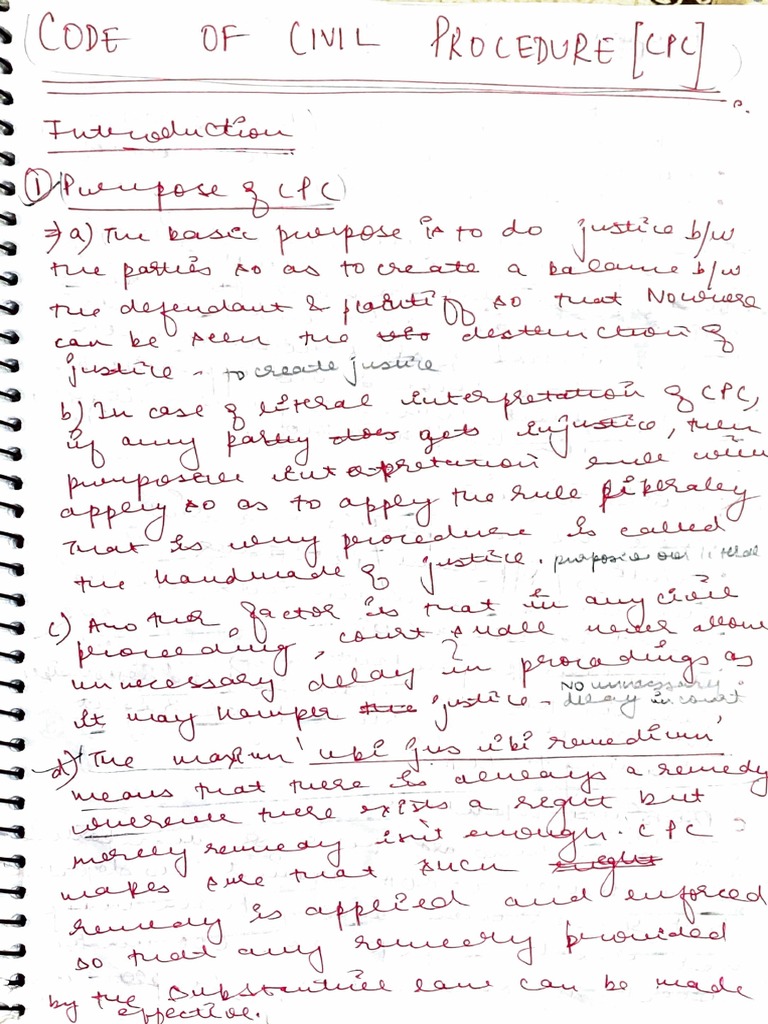 CODE OF CIVIL PROCEDURE [CPC]
Introduction
① Purpose of CPC
⇒ a) The basic purpose is to do justice b/w
the parties so as to create a balance b/w
the defendant & plaintiff so that Nowhere
can be seen the destruction of
justice - to create justice
b) In case of literal interpretation of CPC,
if any party does gets injustice, then
purposive interpretation
apply so as to apply the rule
that is why procedure is called
the handmade of justice. purposive over literal
c) Another factor is that in any civil
proceeding, court shall never allow
unnecessary delay in procadings as
it may hamper the justice - No unnecessary
delay in court
d) The maxim 'ubi jus ubi remedium'
means that there is always a remedy
wherever there exists a right but
merely remedy isn't enough. CPC
makes sure that such right
remedy is applied and enforced
so that any remedy provided
by the substantive law can be made
effective.